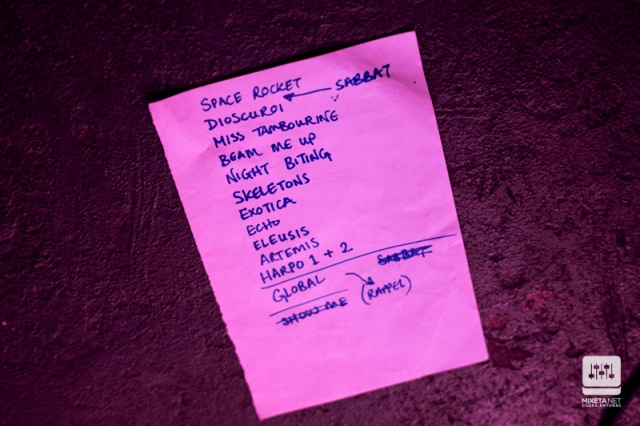 SPACE ROCKET
SABBAT
DIOSCUROI
MISS TAMBOURINE
BEAM ME UP
NIGHT BITING
SKELETONS
EXOTICA
ECHO
ELEUSIS
ARTEMIS
HARPO 1 + 2
SABBAT
GLOBAL
(RAPPEL)
SHOW ME
MIXETA.NET